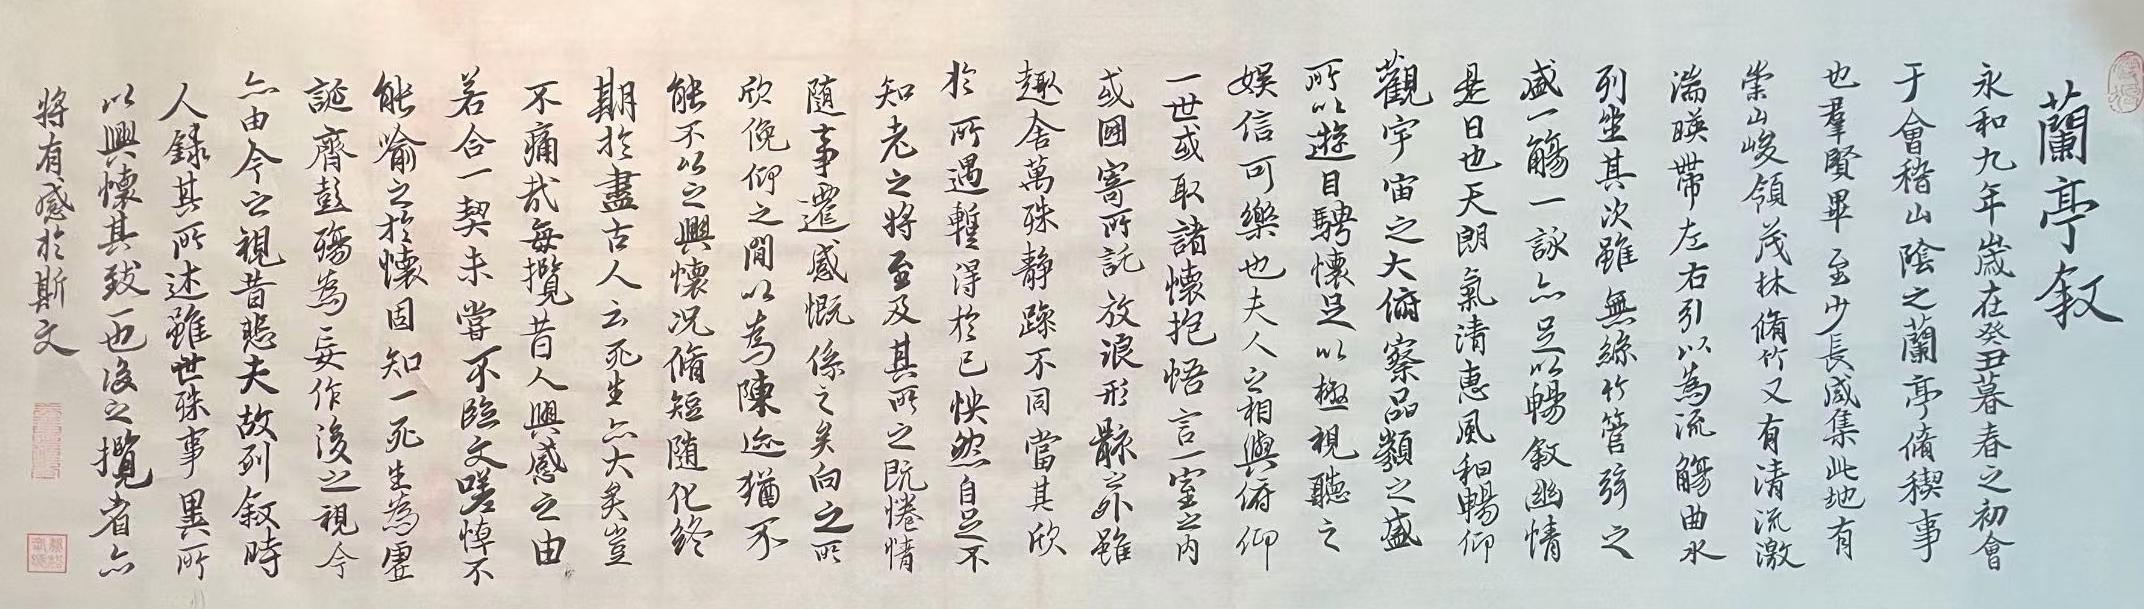 蘭亭叙
永和九年歲在癸丑暮春之初會
于會稽山陰之蘭亭脩稧事
也羣賢畢至少長咸集此地有
崇山峻領茂林脩竹又有清流激
湍暎帶左右引以為流觴曲水
列坐其次雖無絲竹管弦之
盛一觴一詠亦足以暢敘幽情
是日也天朗氣清惠風和暢仰
觀宇宙之大俯察品類之盛
所以遊目騁懷足以極視聽之
娛信可樂也夫人之相與俯仰
一世或取諸懷抱悟言一室之内
或因寄所託放浪形骸之外雖
趣舍萬殊静躁不同當其欣
於所遇暫得於己怏然自足不
知老之將至及其所之既惓情
隨事遷感慨係之矣向之所
欣俛仰之間以為陳迹猶不
能不以之興懷况脩短随化終
期於盡古人云死生亦大矣豈
不痛哉每攬昔人興感之由
若合一契未嘗不臨文嗟悼不
能喻之於懷固知一死生為虛
誕齊彭殤為妄作後之視今
亦由今之視昔悲夫故列叙時
人録其所述雖世殊事異所
以興懷其致一也後之攬者亦
將有感於斯文